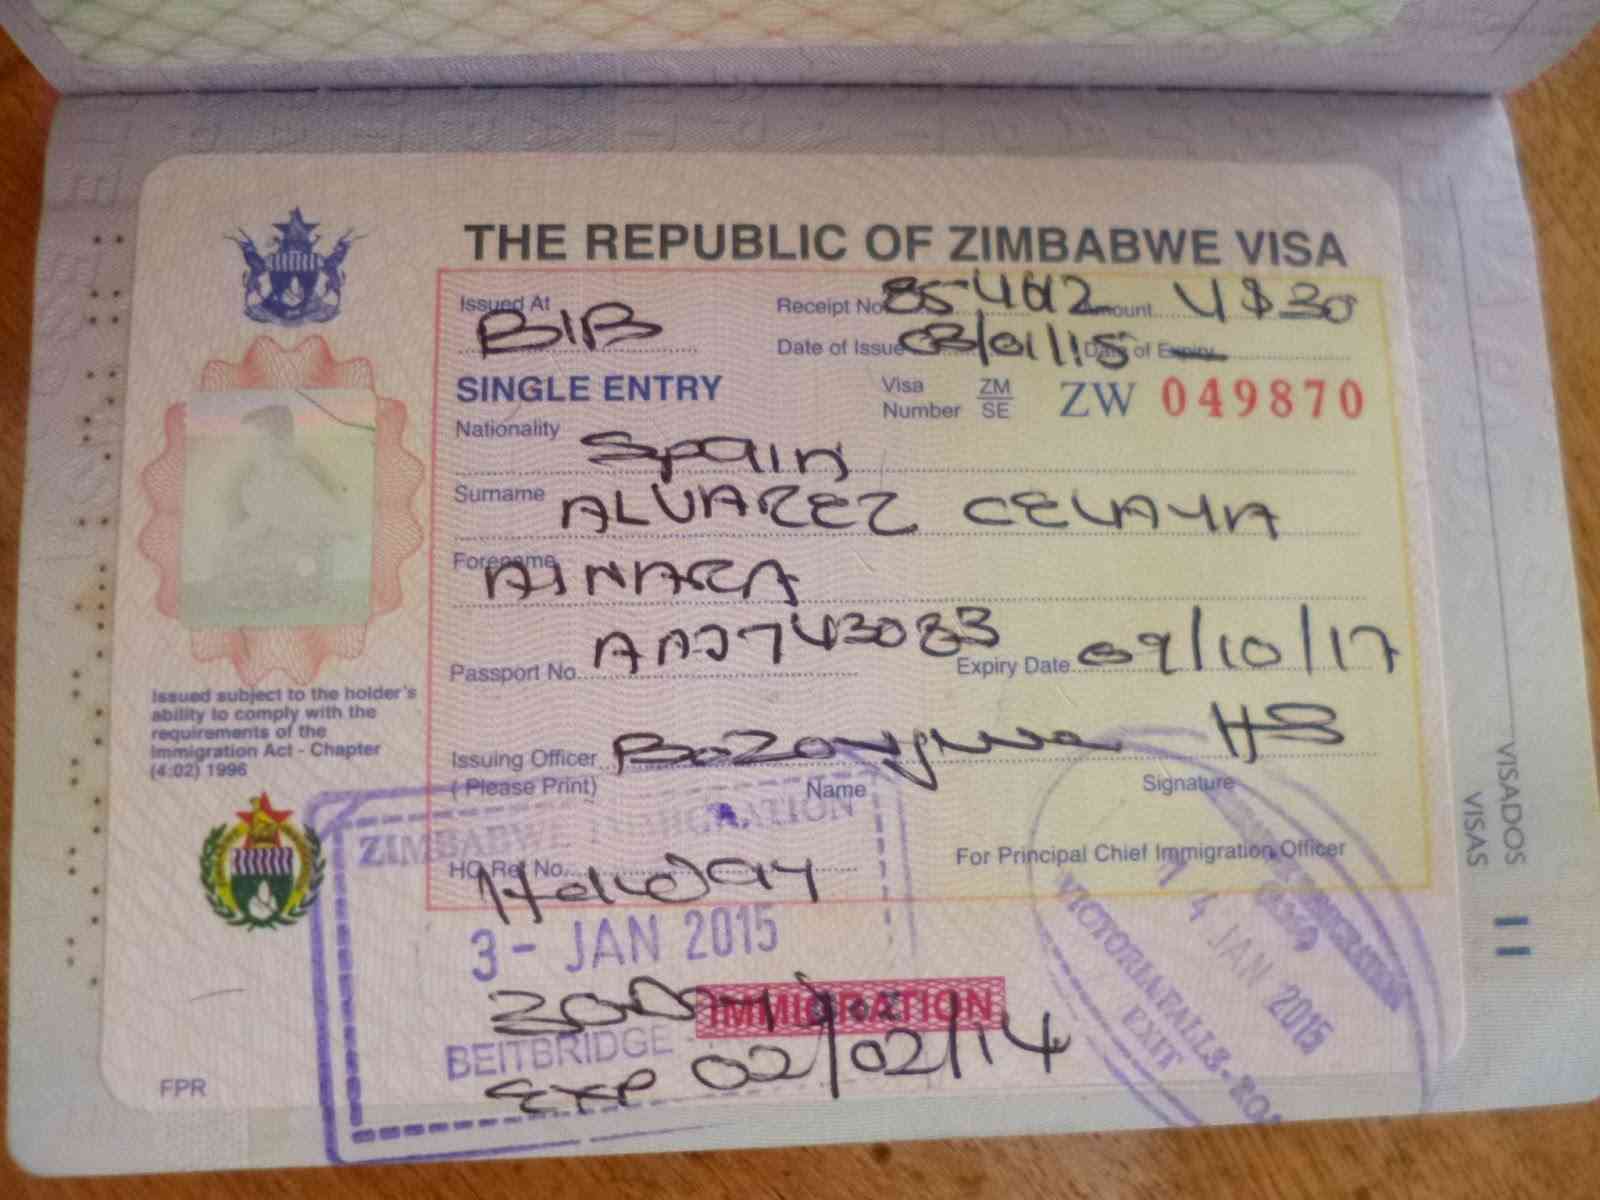 THE REPUBLIC OF ZIMBABWE VISA
Issued At BIB Receipt No. Amount U$30
Date of Issue 03/01/15 Date of Expiry
SINGLE ENTRY Visa Number ZM SE ZW 049870
Nationality Spain
Surname ALVAREZ CELAYA
Forename AINARA
Passport No. Expiry Date 09/10/17
Issuing Officer HB
( Please Print) Name Signature
ZIMBABWE IMMIGRATION
HO Ref No. Holiday For Principal Chief Immigration Officer
3 - JAN 2015
30 Days IMMIGRATION
BEITBRIDGE
EXP 02/02/14
Issued subject to the holder's
ability to comply with the
requirements of the
Immigration Act - Chapter
(4:02) 1996
FPR
14 JAN 2015
VICTORIA FALLS - ROAD
EXIT
VISADOS
VISAS
11